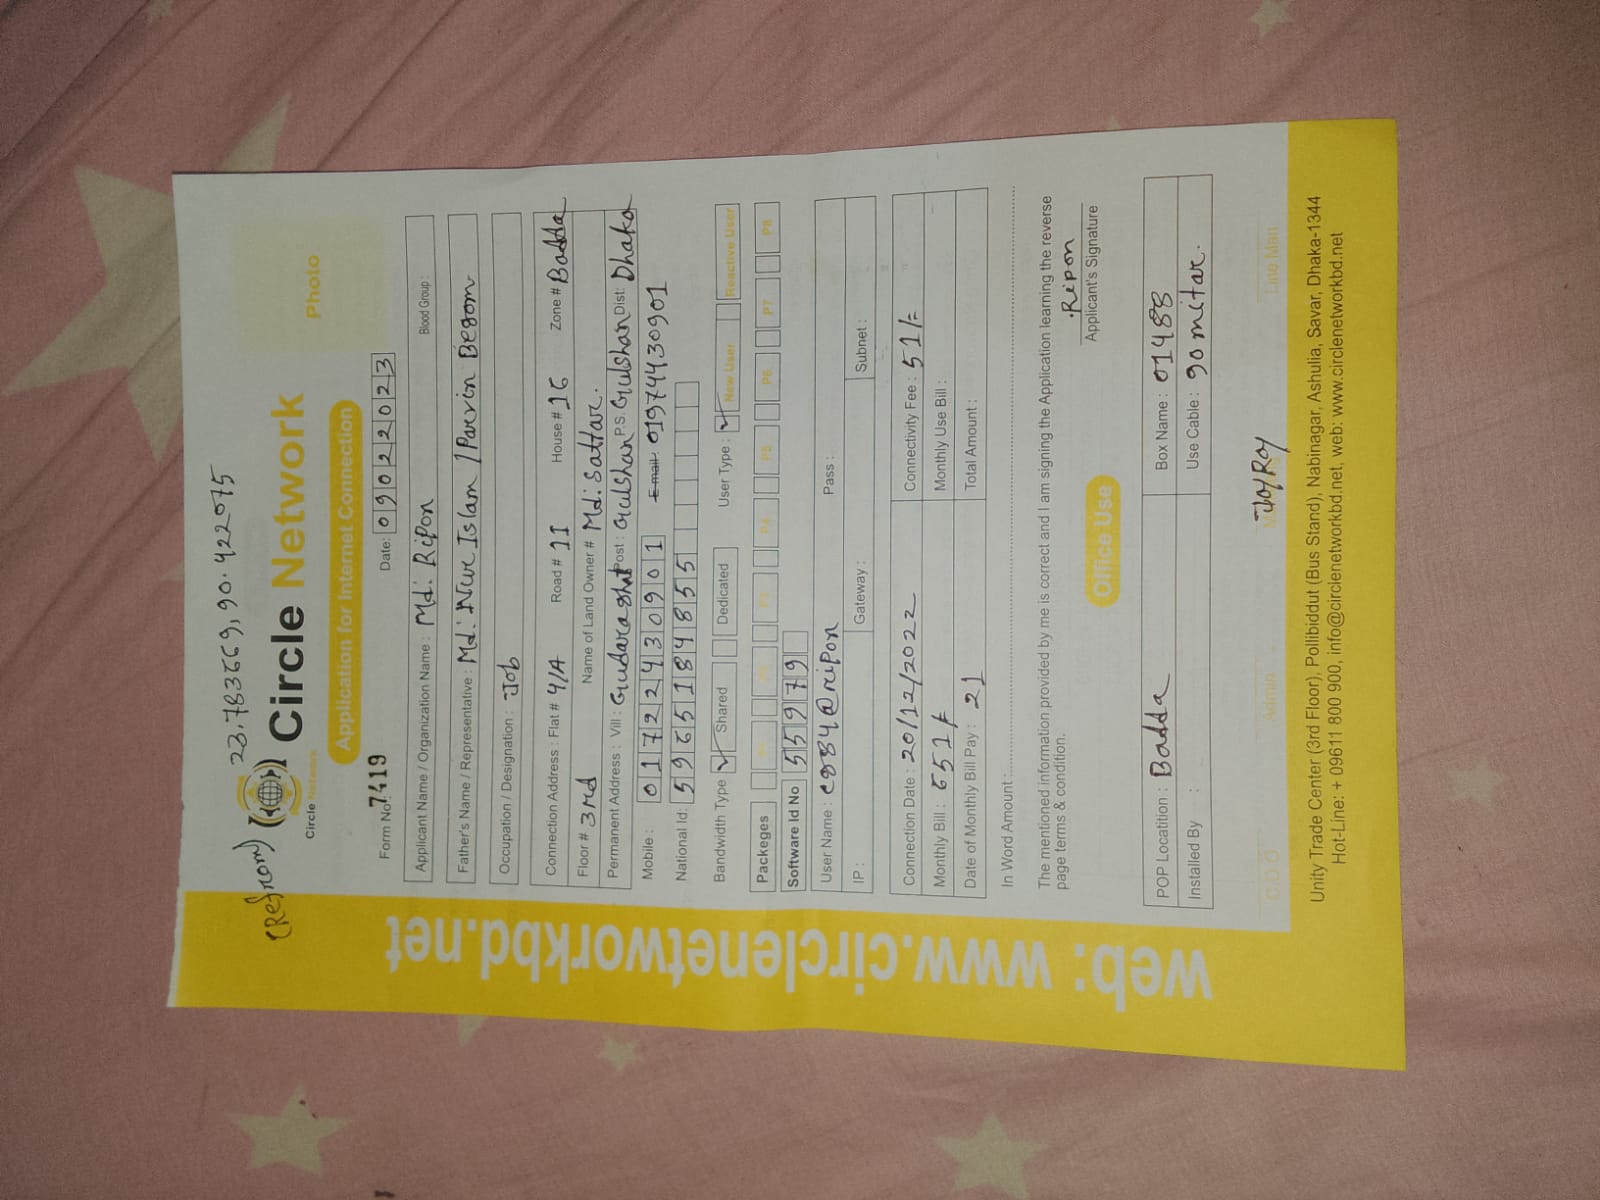 (Refrom) 23.783669, 90.422075
Circle Network
Circle Network
Photo
Application for Internet Connection
Form No: 7419 Date: 09022023
Applicant Name / Organization Name : Md: Ripon Blood Group :
Father's Name / Representative : Md: Nur Islam / Parvin Begom
Occupation / Designation : Job
Connection Address : Flat # 4/A Road # 11 House # 16 Zone # Badda
Floor # 3rd Name of Land Owner # Md: Sattar.
Permanent Address : Vill : Gudaraghat Post : Gulshan P.S: Gulshan Dist: Dhaka
Mobile : 01722430901 Email: 01974430901
National Id: 5965184855
Bandwidth Type ✓ Shared Dedicated User Type : ✓ New User Reactive User
Packeges P4 P5 P6 P7 P8
Software Id No 55979
User Name : c884@ripon Pass :
IP : Gateway : Subnet :
Connection Date : 20/12/2022 Connectivity Fee : 51/=
Monthly Bill : 651/ Monthly Use Bill :
Date of Monthly Bill Pay : 21 Total Amount :
In Word Amount:
The mentioned information provided by me is correct and I am signing the Application learning the reverse
page terms & condition.
Ripon
Applicant's Signature
Office Use
POP Locatition : Badda Box Name : 01488
Installed By : Use Cable : 90 mitar.
Joy/Roy
C O O Admin Line Man
Unity Trade Center (3rd Floor), Pollibiddut (Bus Stand), Nabinagar, Ashulia, Savar, Dhaka-1344
Hot-Line: + 09611 800 900, info@circlenetworkbd.net, web: www.circlenetworkbd.net
web: www.circlenetworkbd.net